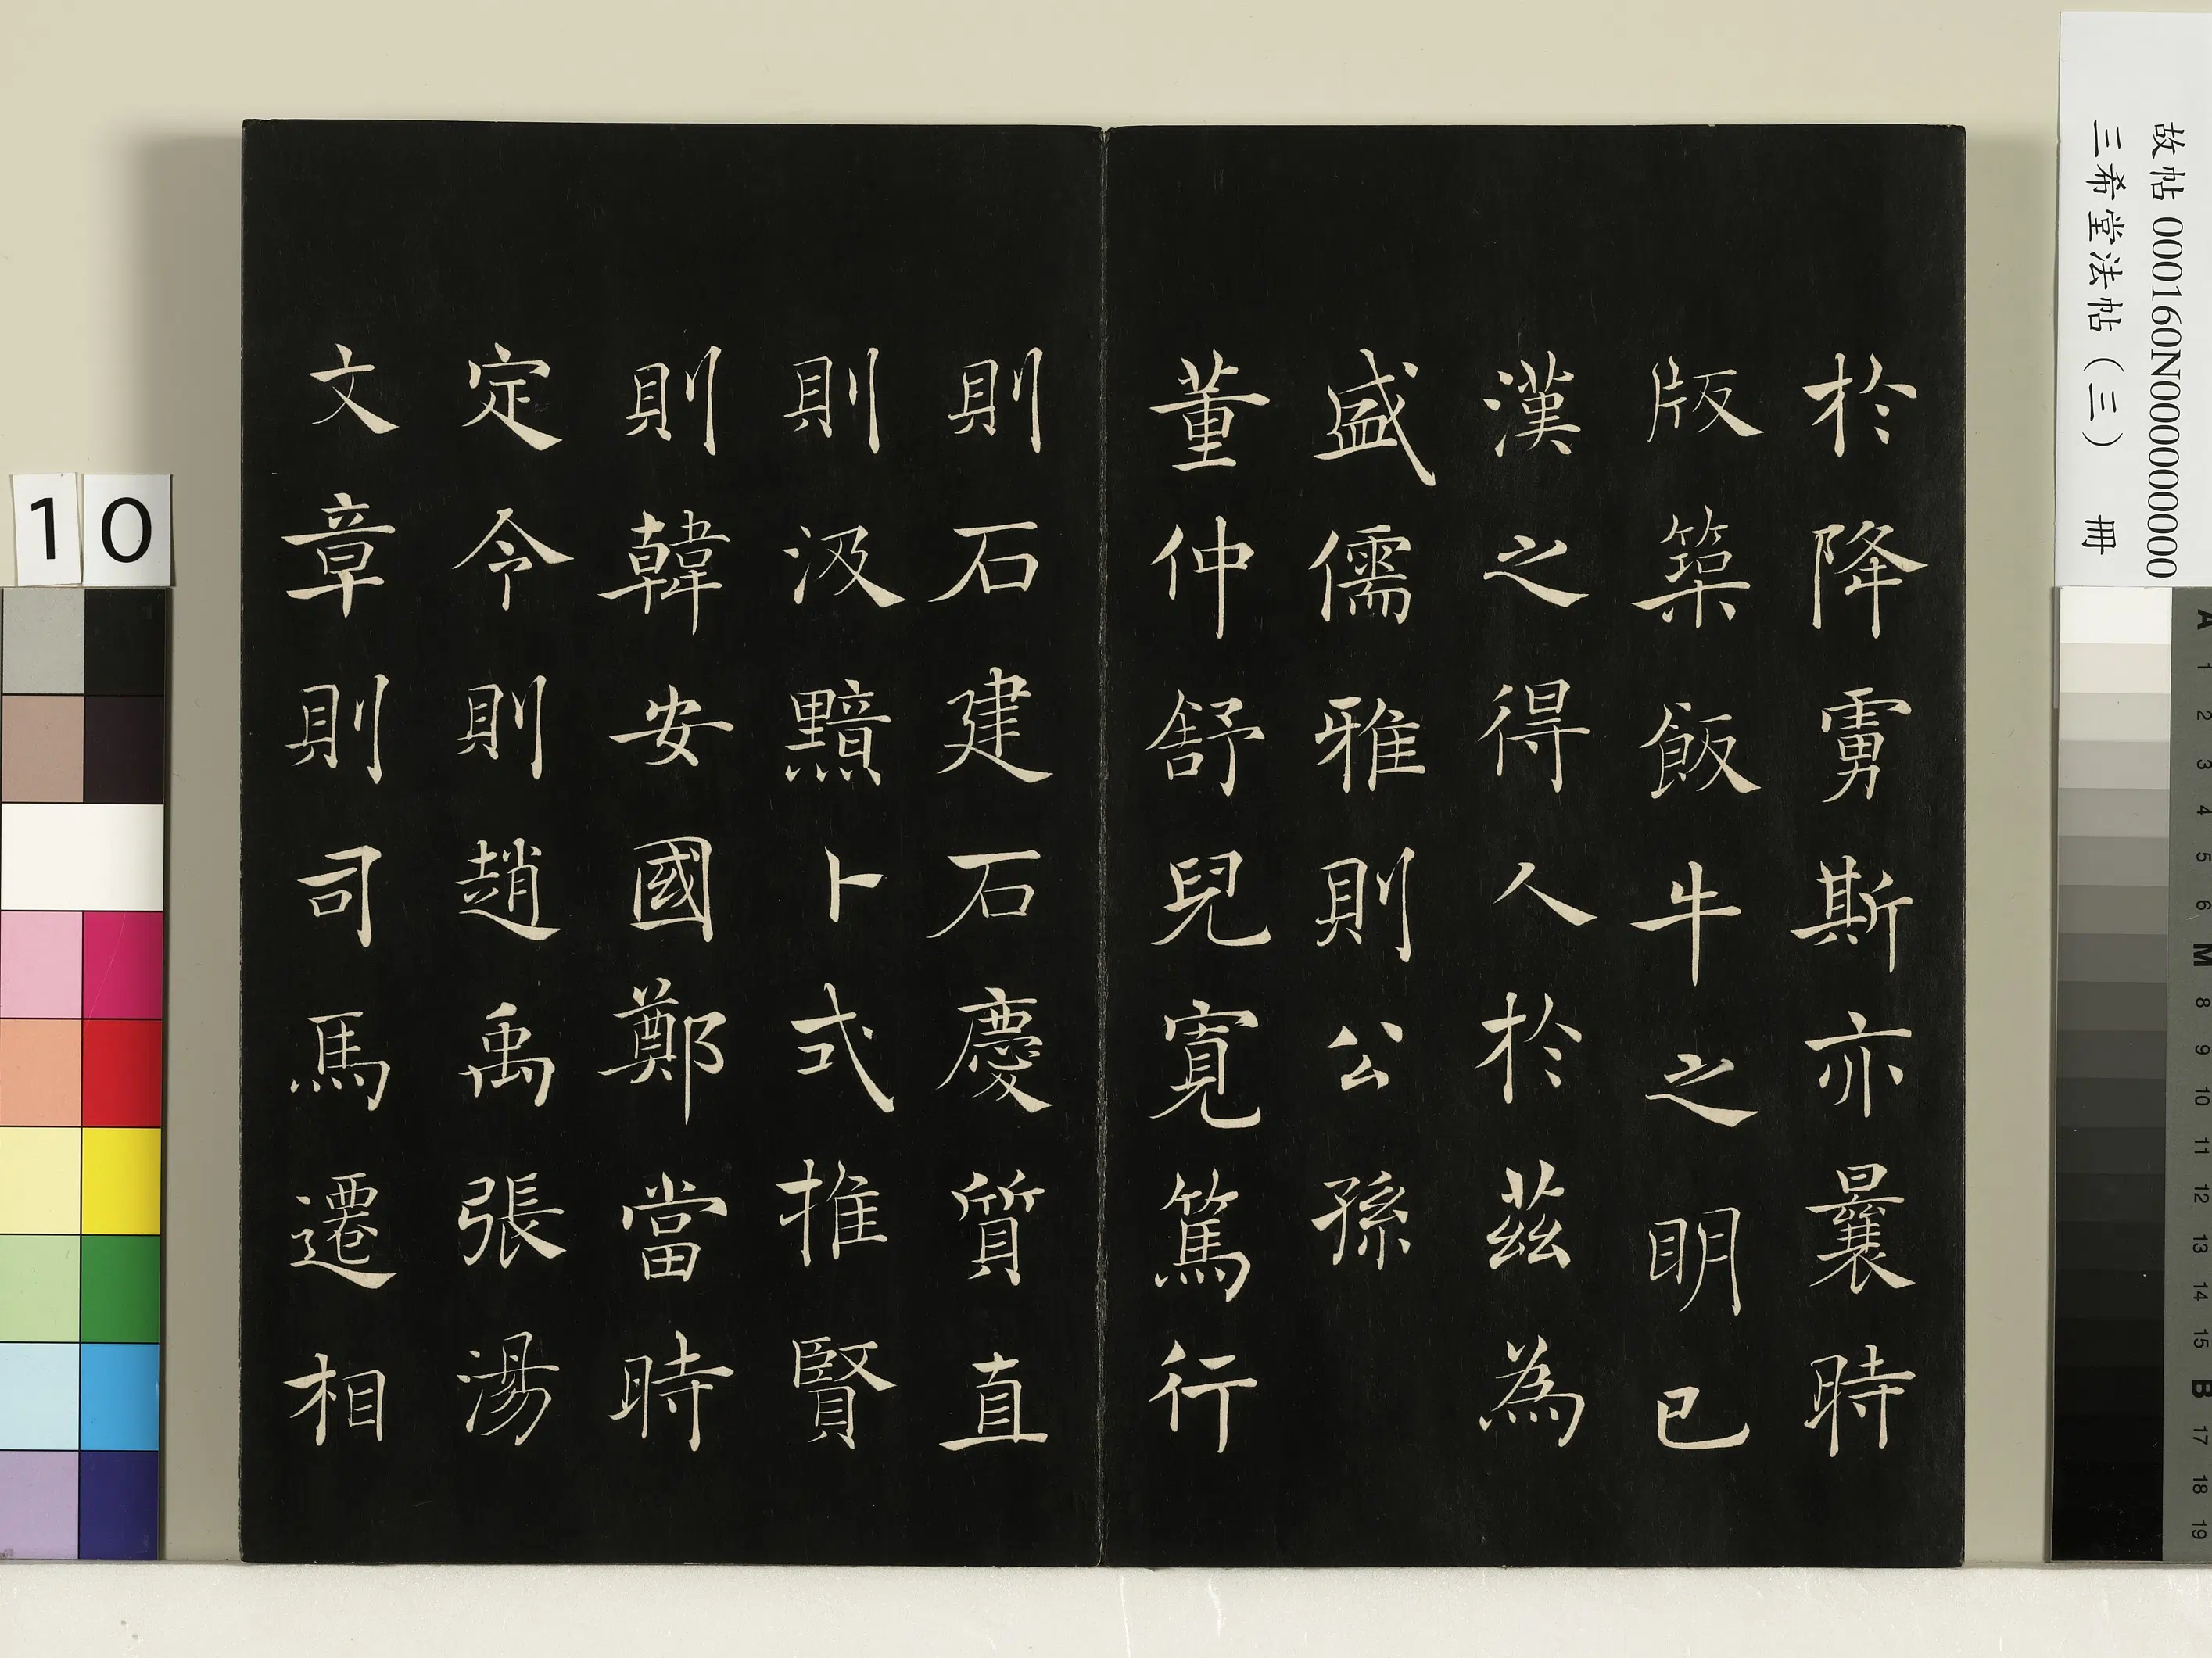 於降虜斯亦曩時
版築飯牛之明已
漢之得人於茲為
盛儒雅則公孫
董仲舒兒寬篤行
則石建石慶質直
則汲黯卜式推賢
則韓安國鄭當時
定令則趙禹張湯
文章則司馬遷相
故帖000160N000000000
三希堂法帖（三） 冊
10
A 1 2 3 4 5 6 M 8 9 10 11 12 13 14 15 B 17 18 19